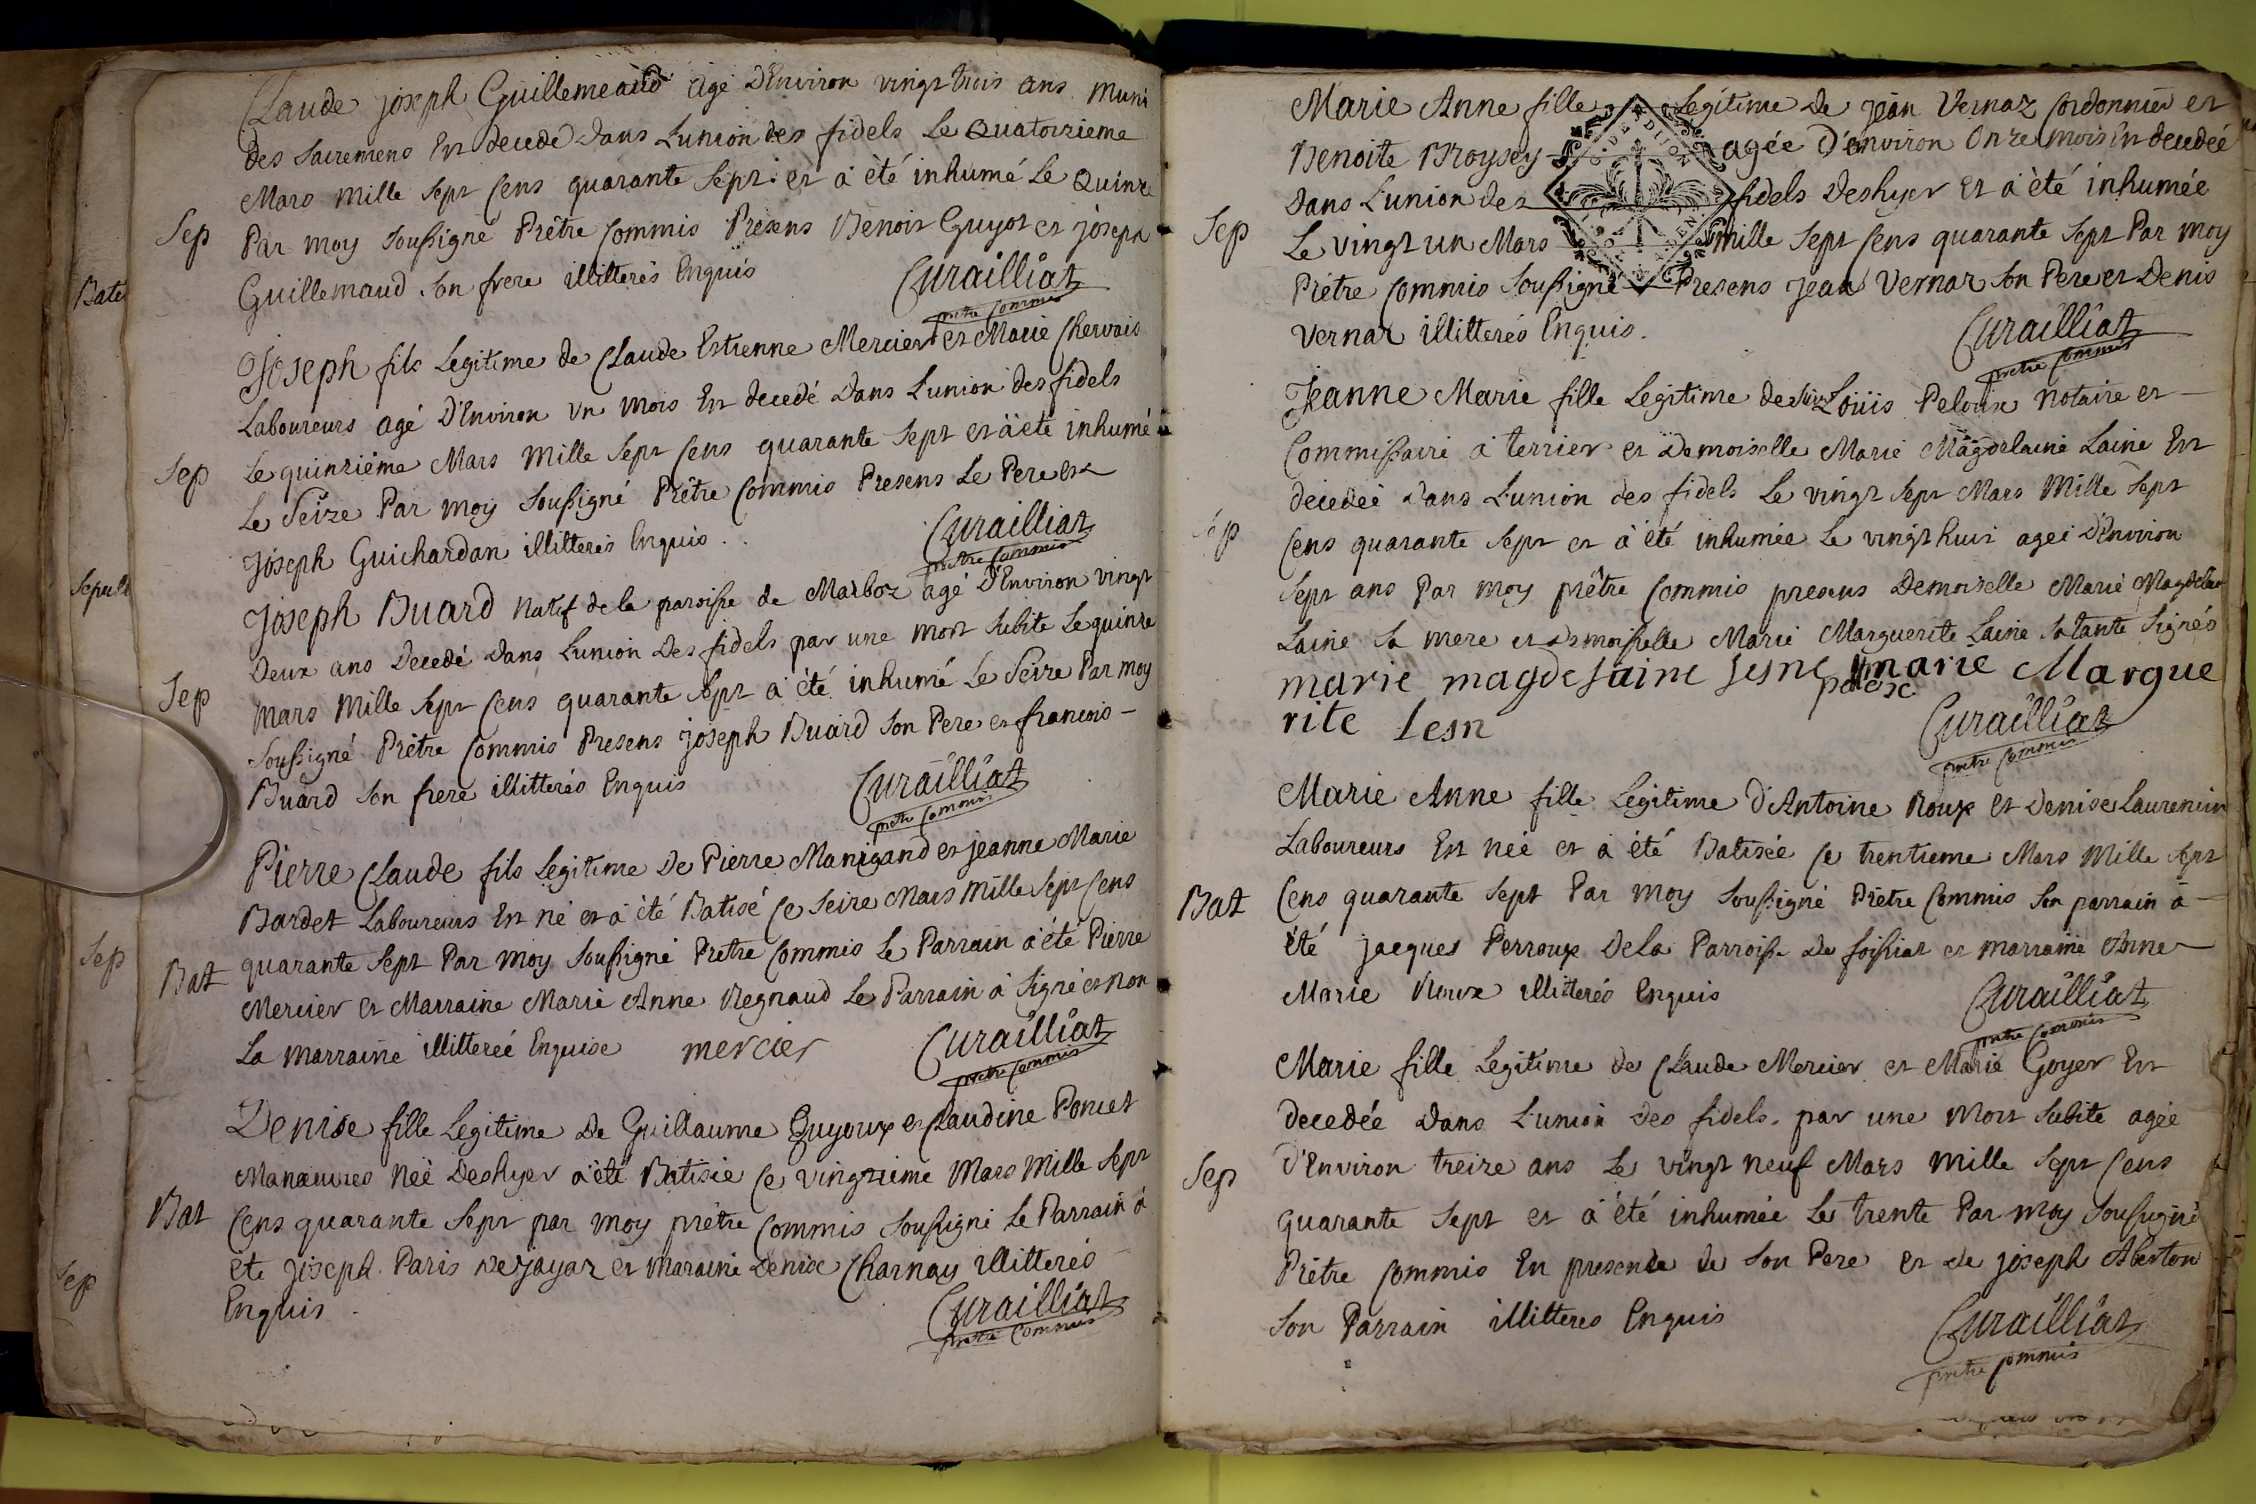 Claude joseph Guillemeaud agé D'Environ vingt trois ans muni
des sacremens Est decedé dans L'union des fidels Le Quatorzieme
Mars mille sept Cens quarante sept et a été inhumé Le Quinze
Sep
Par moy soussigné Prêtre Commis Présens Benoit Guyot et joseph
Guillemaud son frere illitterés Enquis
Curailliat
prêtre Commis
Joseph fils Legitime de Claude Estienne Mercier et Marie Chervais
Laboureurs agé D'Environ un mois Est decedé Dans L'union des fidels
Sep
Le quinziéme Mars Mille Sept Cens quarante Sept et a été inhumé
Le Seize Par moy soussigné Prêtre Commis Presens Le Pere et
Joseph Guichardan illitterés Enquis.
Curailliat
prêtre Commis
Joseph Buard natif de la paroisse de Marboz agé D'Environ vingt
Deux ans Decedé dans L'union Des fidels par une mort subite Le quinze
Sep
Mars Mille Sept Cens quarante Sept a été inhumé Le Seize Par moy
soussigné Prêtre Commis Presens joseph Buard son Pere et francois
Buard son frere illitterés Enquis
Curailliat
prêtre Commis
Pierre Claude fils Legitime De Pierre Manigand et jeanne Marie
Bardet Laboureurs Est né et a été Batisé Ce Seize Mars Mille Sept Cens
Bat
quarante Sept Par Moy Soussigné Pretre Commis Le Parrain a été Pierre
Mercier et Marraine Marie Anne Regnaud Le Parrain a Signé et non
La marraine illitteréé Enquise mercier
Curailliat
prêtre Commis
Denise fille Legitime De Guillaume Guyoux et Claudine Poncet
Manœuvres née Deshyer a été Batisée Ce vingtieme Mars Mille Sept
Bat
Cens quarante Sept par moy prêtre Commis Soussigné Le Parrain a
ete joseph Paris de jayaz et maraine Denise Charnay illitterés
Enquis.
Curailliat
prêtre Commis
Bate
Sepult
Sep
Sep
Marie Anne fille Legitime de jean Vernaz Cordonnier et
Benoite Broysey agée D'environ Onze mois Est decedée
Dans L'union des fidels Deshyer et a été inhumée
Sep
Le vingt un Mars mille Sept Cens quarante Sept Par moy
Prêtre Commis Soussigné Presens Jean Vernaz son Pere et Denis
Vernaz illitterés Enquis.
Curailliat
prêtre Commis
Jeanne Marie fille Legitime de Sieur Loüis Peloux Notaire et
Commissaire a terrier et Demoiselle Marie Magdelaine Laine Est
decedeé dans L'union des fidels Le vingt Sept Mars Mille Sept
Sep
Cens quarante Sept et a été inhumée Le vingt huit ageé D'Environ
Sept ans Par moy prêtre Commis presens Demoiselle Marie Magdelaine
Laine Sa mere et Demoiselle Marie Marguerite Laine Sa tante Signés
marie magdelaine lesne marie Margue
rite lesn
Curailliat
prêtre Commis
Marie Anne fille Legitime D'Antoine Roux et Denise Laurencin
Laboureurs Est née et a été Batisée Ce trentieme Mars Mille Sept
Bat
Cens quarante Sept Par Moy Soussigné Prêtre Commis Son parrain a
été jacques Perroux De la Parroisse de foissiat et marraine Anne
Marie Roux illitterés Enquis
Curailliat
prêtre Commis
Marie fille Legitime de Claude Mercier et Marie Goyer Est
Decedée Dans L'union Des fidels par une Mort Subite agée
Sep
D'Environ treize ans Le vingt neuf Mars Mille Sept Cens
quarante Sept et a été inhumée Le trente Par Moy Soussigné
Prêtre Commis En presence de Son Pere et de joseph Aberton
Son Parrain illitteres Enquis
Curailliat
prêtre Commis